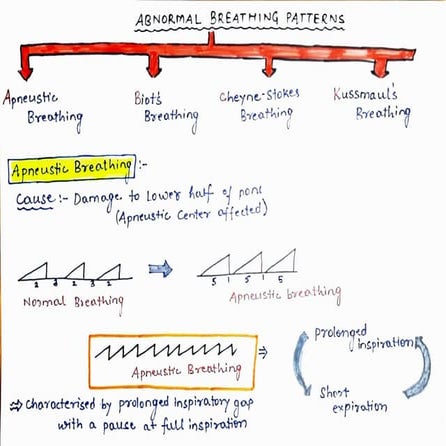 ABNORMAL BREATHING PATTERNS
Apneustic Breathing
Biot's Breathing
Cheyne-Stokes Breathing
Kussmaul's Breathing
Apneustic Breathing :-
Cause :- Damage to Lower half of pons
(Apneustic Center affected)
Normal Breathing
5 1 5 1 5
Apneustic breathing
Apneustic Breathing
⇒
Prolonged inspiration
Short expiration
⇒ Characterised by prolonged inspiratory gap
with a pause at full inspiration